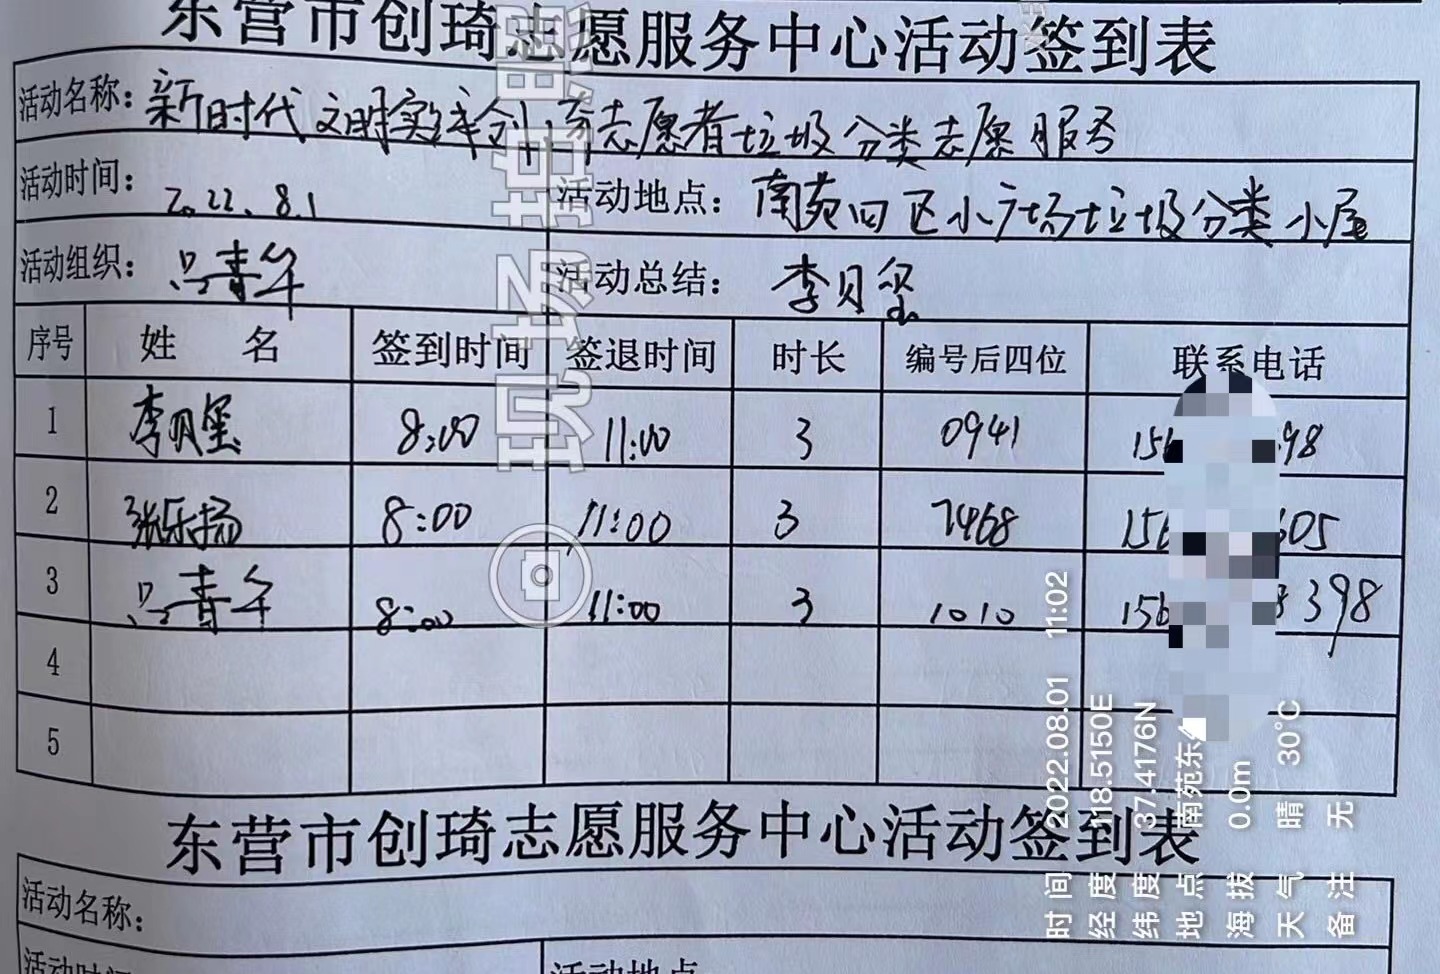 东营市创琦志愿服务中心活动签到表
活动名称：新时代文明实践创琦志愿者垃圾分类志愿服务
活动时间：2022.8.1 活动地点：南苑四区小广场垃圾分类小屋
活动组织：吕青华 活动总结：李贝玺
序号 姓名 签到时间 签退时间 时长 编号后四位 联系电话
1 李贝玺 8:00 11:00 3 0941 15 98
2 张乐扬 8:00 11:00 3 7468 15 605
3 吕青华 8:00 11:00 3 1010 15 398
4
5
东营市创琦志愿服务中心活动签到表
活动名称：
活动时间 活动地点
现场拍照
时间 2022.08.01 11:02
经度 118.5150E
纬度 37.4176N
地点 南苑东
海拔 0.0m
天气 晴 30°C
备注 无